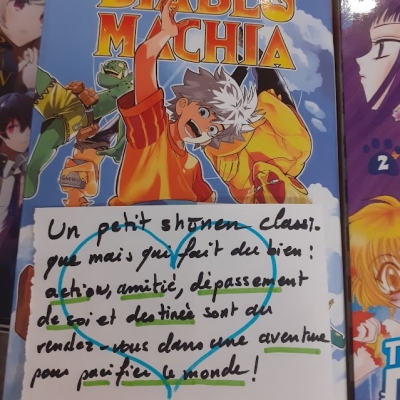 DIABLO
MACHIA
Un petit shōnen classi-
que mais qui fait du bien :
action, amitié, dépassement
de soi et destinée sont au
rendez-vous dans une aventure
pour pacifier le monde !
2